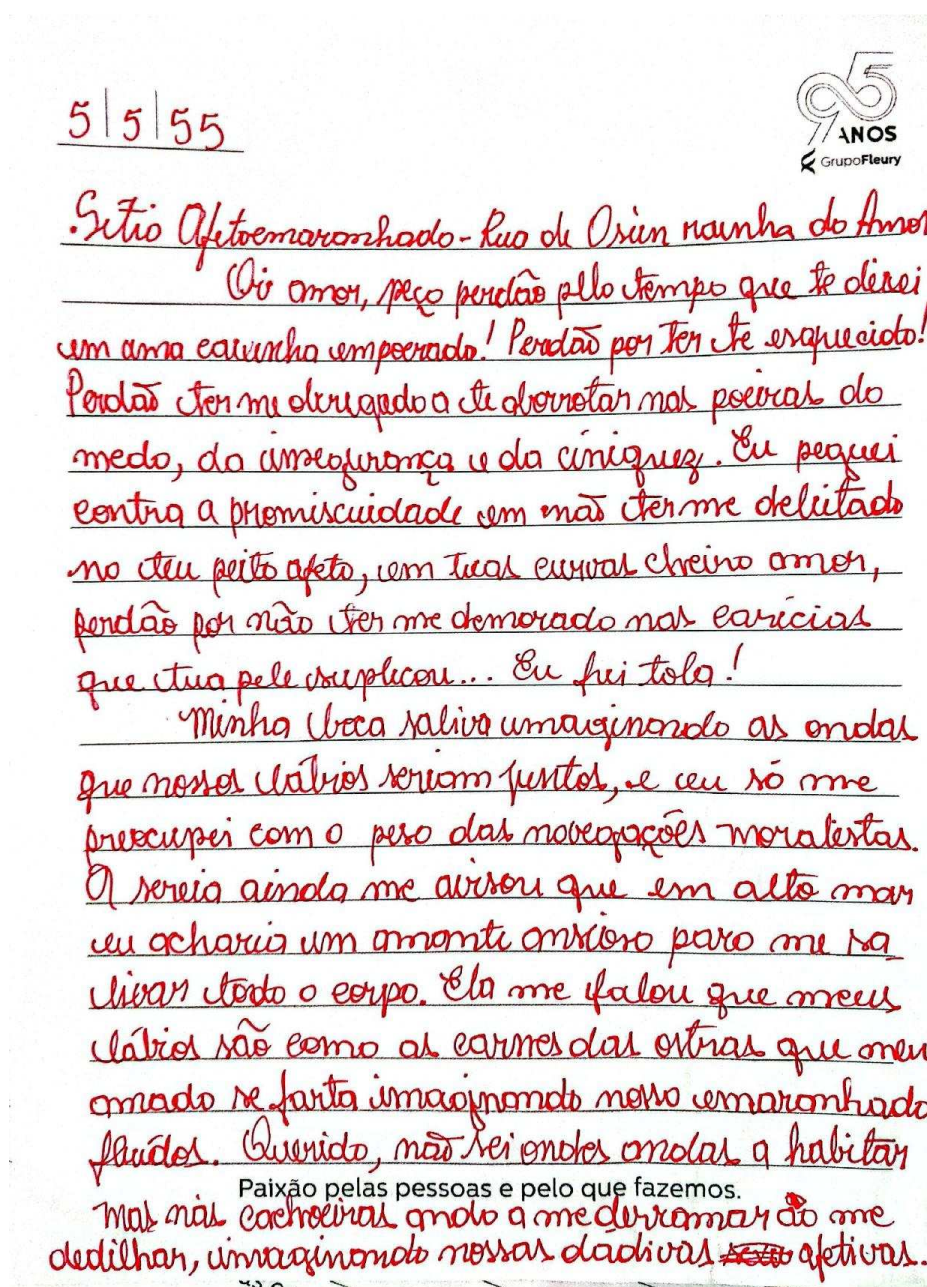 95
ANOS
GrupoFleury
5|5|55
Sítio Afetoemaranhado - Rua de Osun rainha do Amor
Oi amor, peço perdão pello tempo que te deixei
em uma caixinha empoerado! Perdão por ter te esquecido!
Perdão ter me obrigado a te abarrotar nas poeiras do
medo, da insegurança e da ciniquez. Eu pequei
contra a promiscuidade em não ter me deleitado
no teu peito afeto, em tuas curvas cheiro amor,
perdão por não ter me demorado nas carícias
que tua pele suplicou... Eu fui tola!
Minha boca saliva imaginando as ondas
que nossos lábios seriam juntos, e eu só me
preocupei com o peso das navegações moralistas.
A sereia ainda me avisou que em alto mar
eu acharia um amante ansioso para me sa
livar todo o corpo. Ela me falou que meus
lábios são como as carnes das ostras que meu
amado se farta imaginando nosso emaranhado
fluídos. Querido, não sei ondes andas a habitar
Paixão pelas pessoas e pelo que fazemos.
mas nas cachoeiras ando a me derramar ao me
dedilhar, imaginando nossas dádivas afetivas...